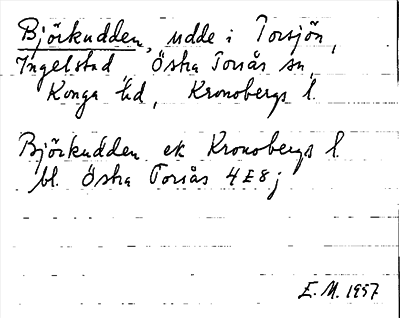 Björkudden, udde i Torsjön,
Ingelstad Östra Torsås sn,
Konga hd, Kronobergs l.
Björkudden ek Kronobergs l
bl. Östra Torsås 4E8j
E.M. 1957